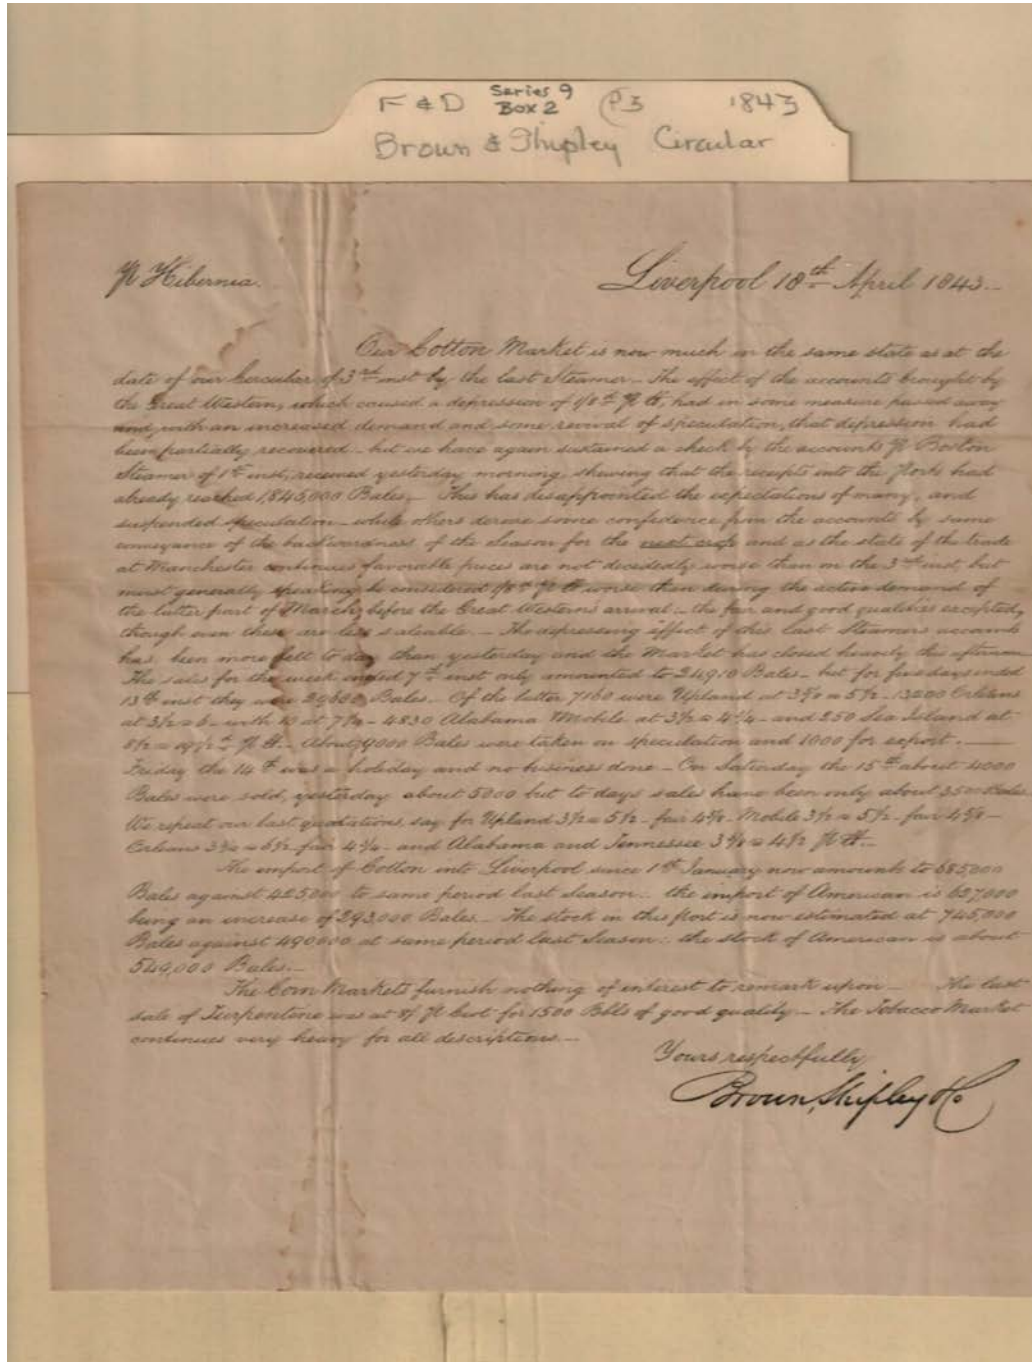 F & D Series 9 Box 2 P3 1843
Brown & Shipley Circular
Hibernia.
Liverpool 18th April 1843.
Our Cotton Market is now much in the same state as at the
date of our Circular of 3rd inst by the last Steamer - The effect of the accounts brought by
the Great Western, which caused a depression of 1/8th, had in some measure passed away
and, with an increased demand and some revival of speculation, that depression had
been partially recovered - but we have again sustained a check by the accounts Boston
Steamer of 1st inst, received yesterday morning, shewing that the receipts into the Ports had
already reached 1,845,000 Bales. - This has disappointed the expectations of many, and
suspended speculation - while others derive some confidence from the accounts by same
conveyance of the backwardness of the Season for the next crop and as the state of the trade
at Manchester continues favorable prices are not decidedly worse than on the 3rd inst, but
must generally speaking be considered worse than during the active demand of
the latter part of March, before the Great Western's arrival - the fair and good qualities excepted,
though even these are less saleable. - The depressing effect of this last Steamers accounts
has been more felt to day than yesterday and the Market has closed heavily this afternoon
The sales for the week ended 7th inst only amounted to 24,910 Bales - but for five days ended
13th inst they were Bales - Of the latter 7160 were Upland at 5 1/2 - Orleans
at 3 1/2 @ 6 - with 10 at - 4830 Alabama & Mobile at 3 1/2 @ - and 250 Sea Island at
About 9000 Bales were taken on speculation and 1000 for export. -
Friday the 14th was a holiday and no business done - On Saturday the 15th about 4000
Bales were sold, yesterday about 5000 but to days sales have been only about 3500 Bales
We repeat our last quotations, say for Upland 3 1/2 @ 5 1/2 - fair - Mobile 3 1/2 @ 5 1/2 - fair
Orleans - fair - and Alabama and Tennessee @ 4 1/2
The import of Cotton into Liverpool since 1st January now amounts to 685,000
Bales against 425,000 to same period last Season: the import of American is 627,000
being an increase of 293,000 Bales. - The stock in this port is now estimated at 745,000
Bales against 490000 at same period last Season: the stock of American is about
549,000 Bales. -
The Corn Markets furnish nothing of interest to remark upon - The last
sale of Turpentine was at 8/ cwt for 1500 Bbls of good quality - The Tobacco Market
continues very heavy for all descriptions. -
Yours respectfully
Brown, Shipley & Co